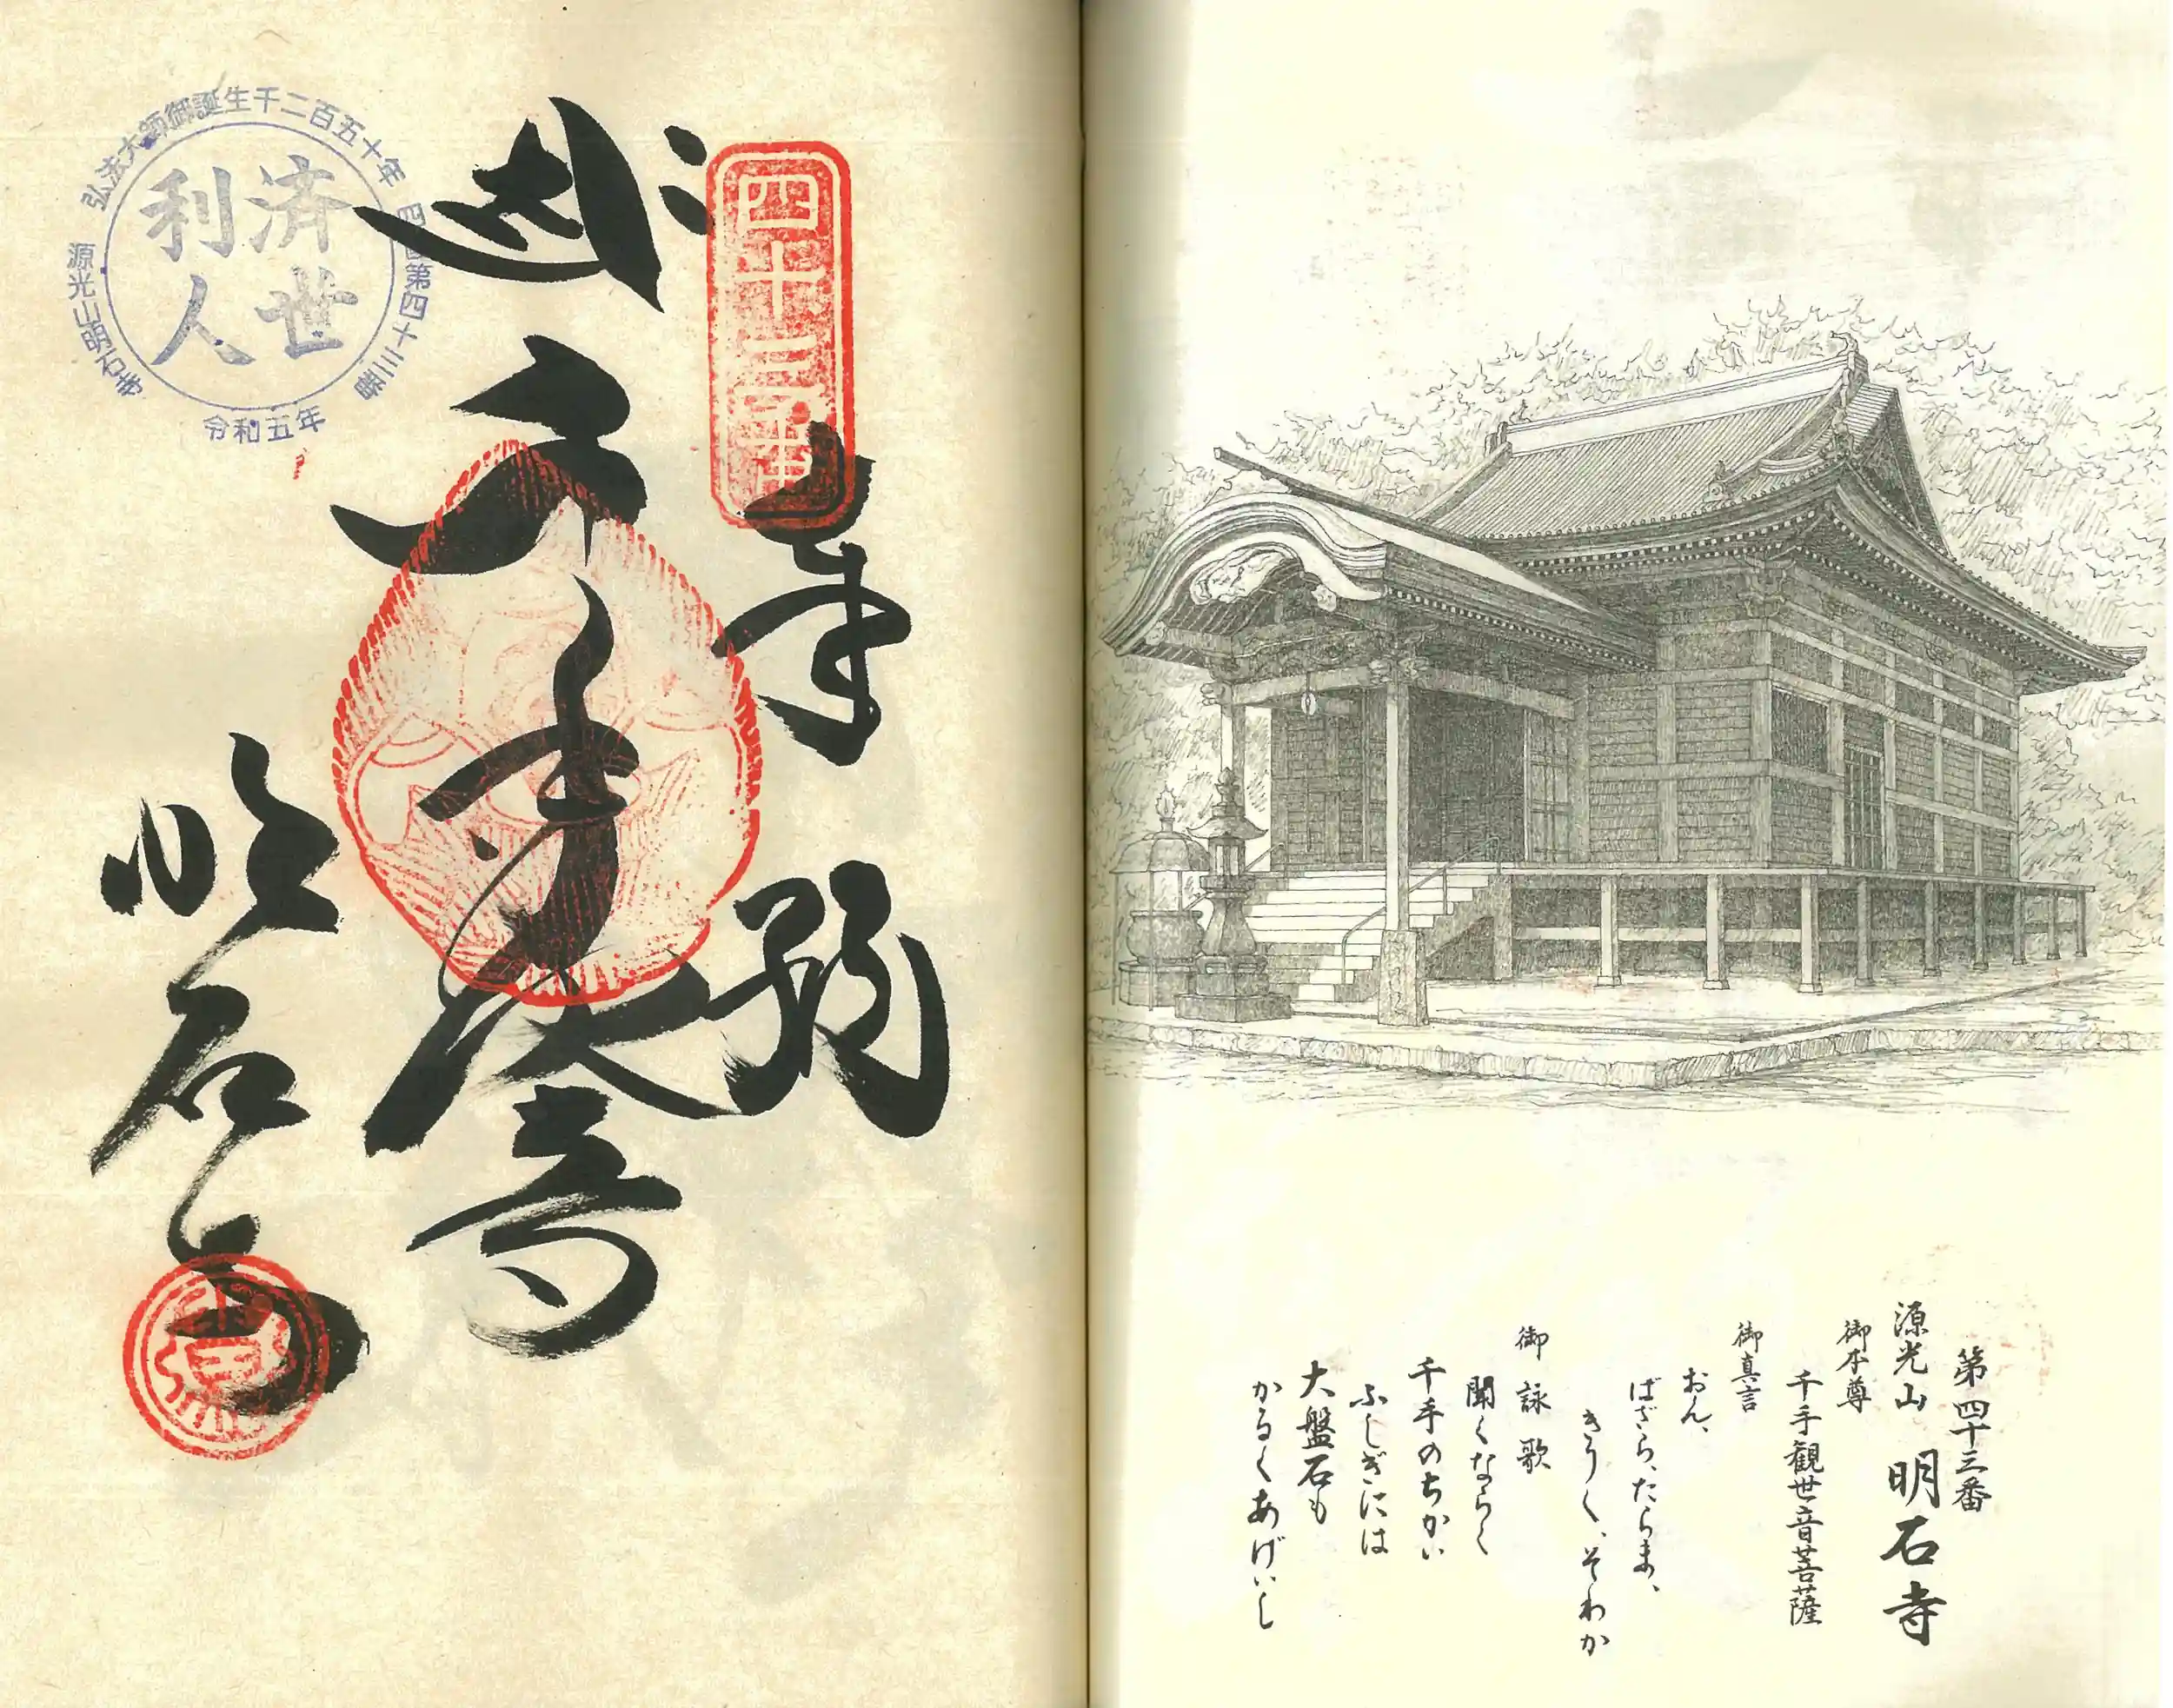 第四十三番
源光山 明石寺
御本尊
千手観世音菩薩
御真言
おん、
ばざら、たらま、
きりく、そわか
御詠歌
聞くならく
千手のちかい
ふしぎには
大盤石も
かるくあげいし
四十三番
奉
千手
明石寺
弘法大師御誕生千二百五十年
四国第四十三番
源光山明石寺
令和五年
済世
利人